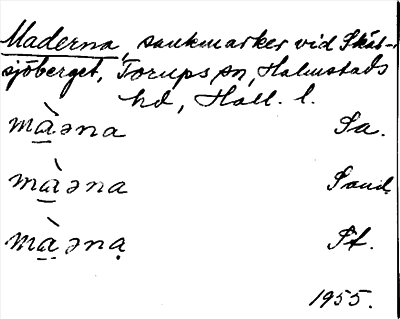 Maderna, sankmarker vid Skät-
sjöberget, Torups sn, Halmstads
hd, Hall. l.
màəna Sa.
màəna Sand.
mà̤ənạ St.
1955.